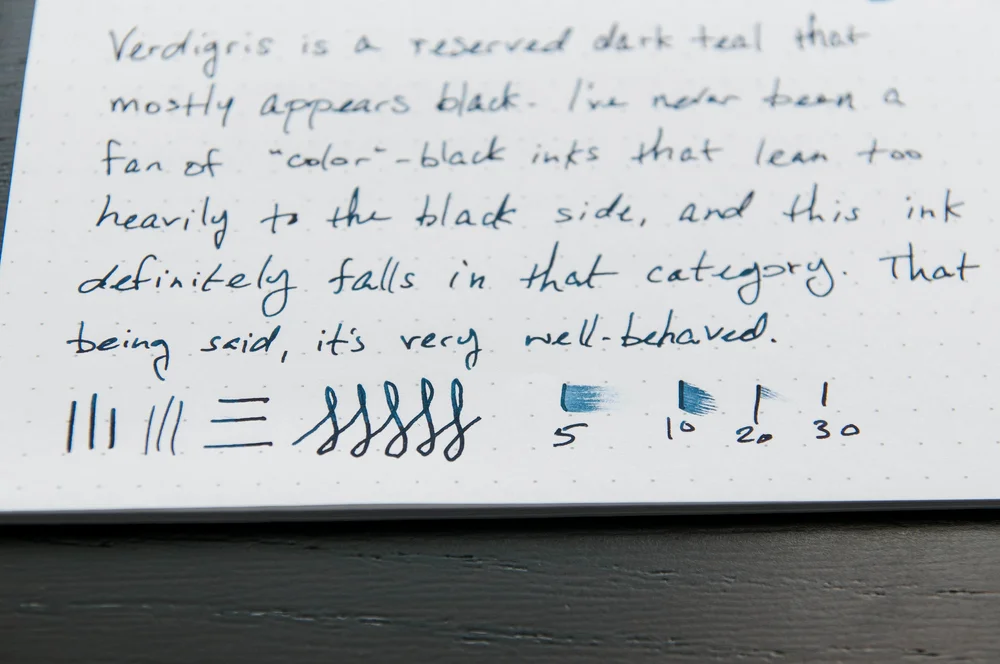 Verdigris is a reserved dark teal that
mostly appears black. I've never been a
fan of "color"-black inks that lean too
heavily to the black side, and this ink
definitely falls in that category. That
being said, it's very well-behaved.
5 10 20 30